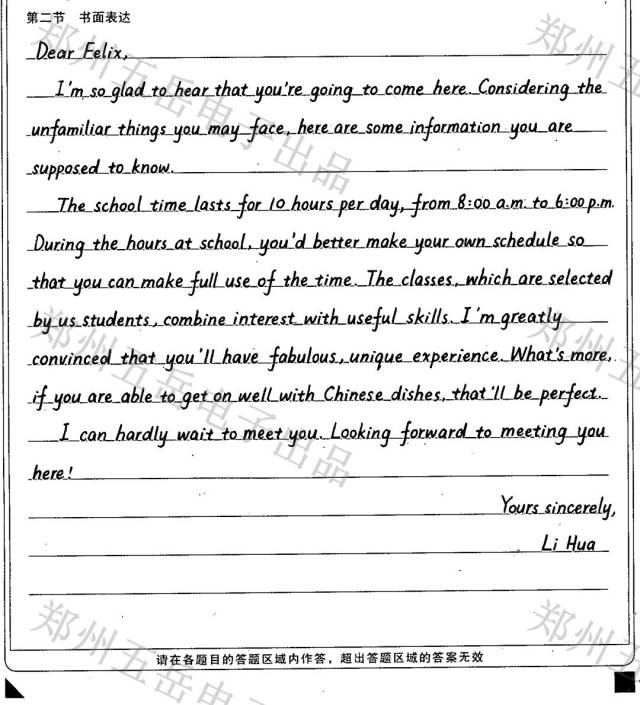 第二节 书面表达
Dear Felix,
I'm so glad to hear that you're going to come here. Considering the
unfamiliar things you may face, here are some information you are
supposed to know.
The school time lasts for 10 hours per day, from 8:00 a.m. to 6:00 p.m.
During the hours at school, you'd better make your own schedule so
that you can make full use of the time. The classes, which are selected
by us students, combine interest with useful skills. I'm greatly
convinced that you'll have fabulous, unique experience. What's more,
if you are able to get on well with Chinese dishes, that'll be perfect.
I can hardly wait to meet you. Looking forward to meeting you
here!
Yours sincerely,
Li Hua
请在各题目的答题区域内作答，超出答题区域的答案无效
郑州五岳电子出品
郑州五
郑州五岳电子出品
郑州五
郑州五岳电子
郑州五